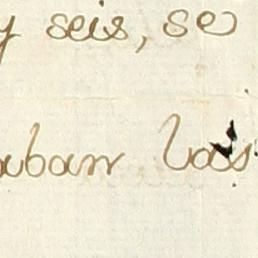 y seis, se
aban las